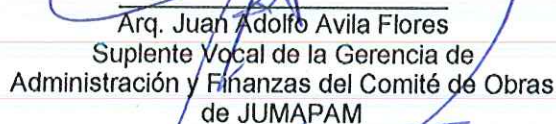 Arq. Juan Adolfo Avila Flores
Suplente Vocal de la Gerencia de
Administración y Finanzas del Comité de Obras
de JUMAPAM